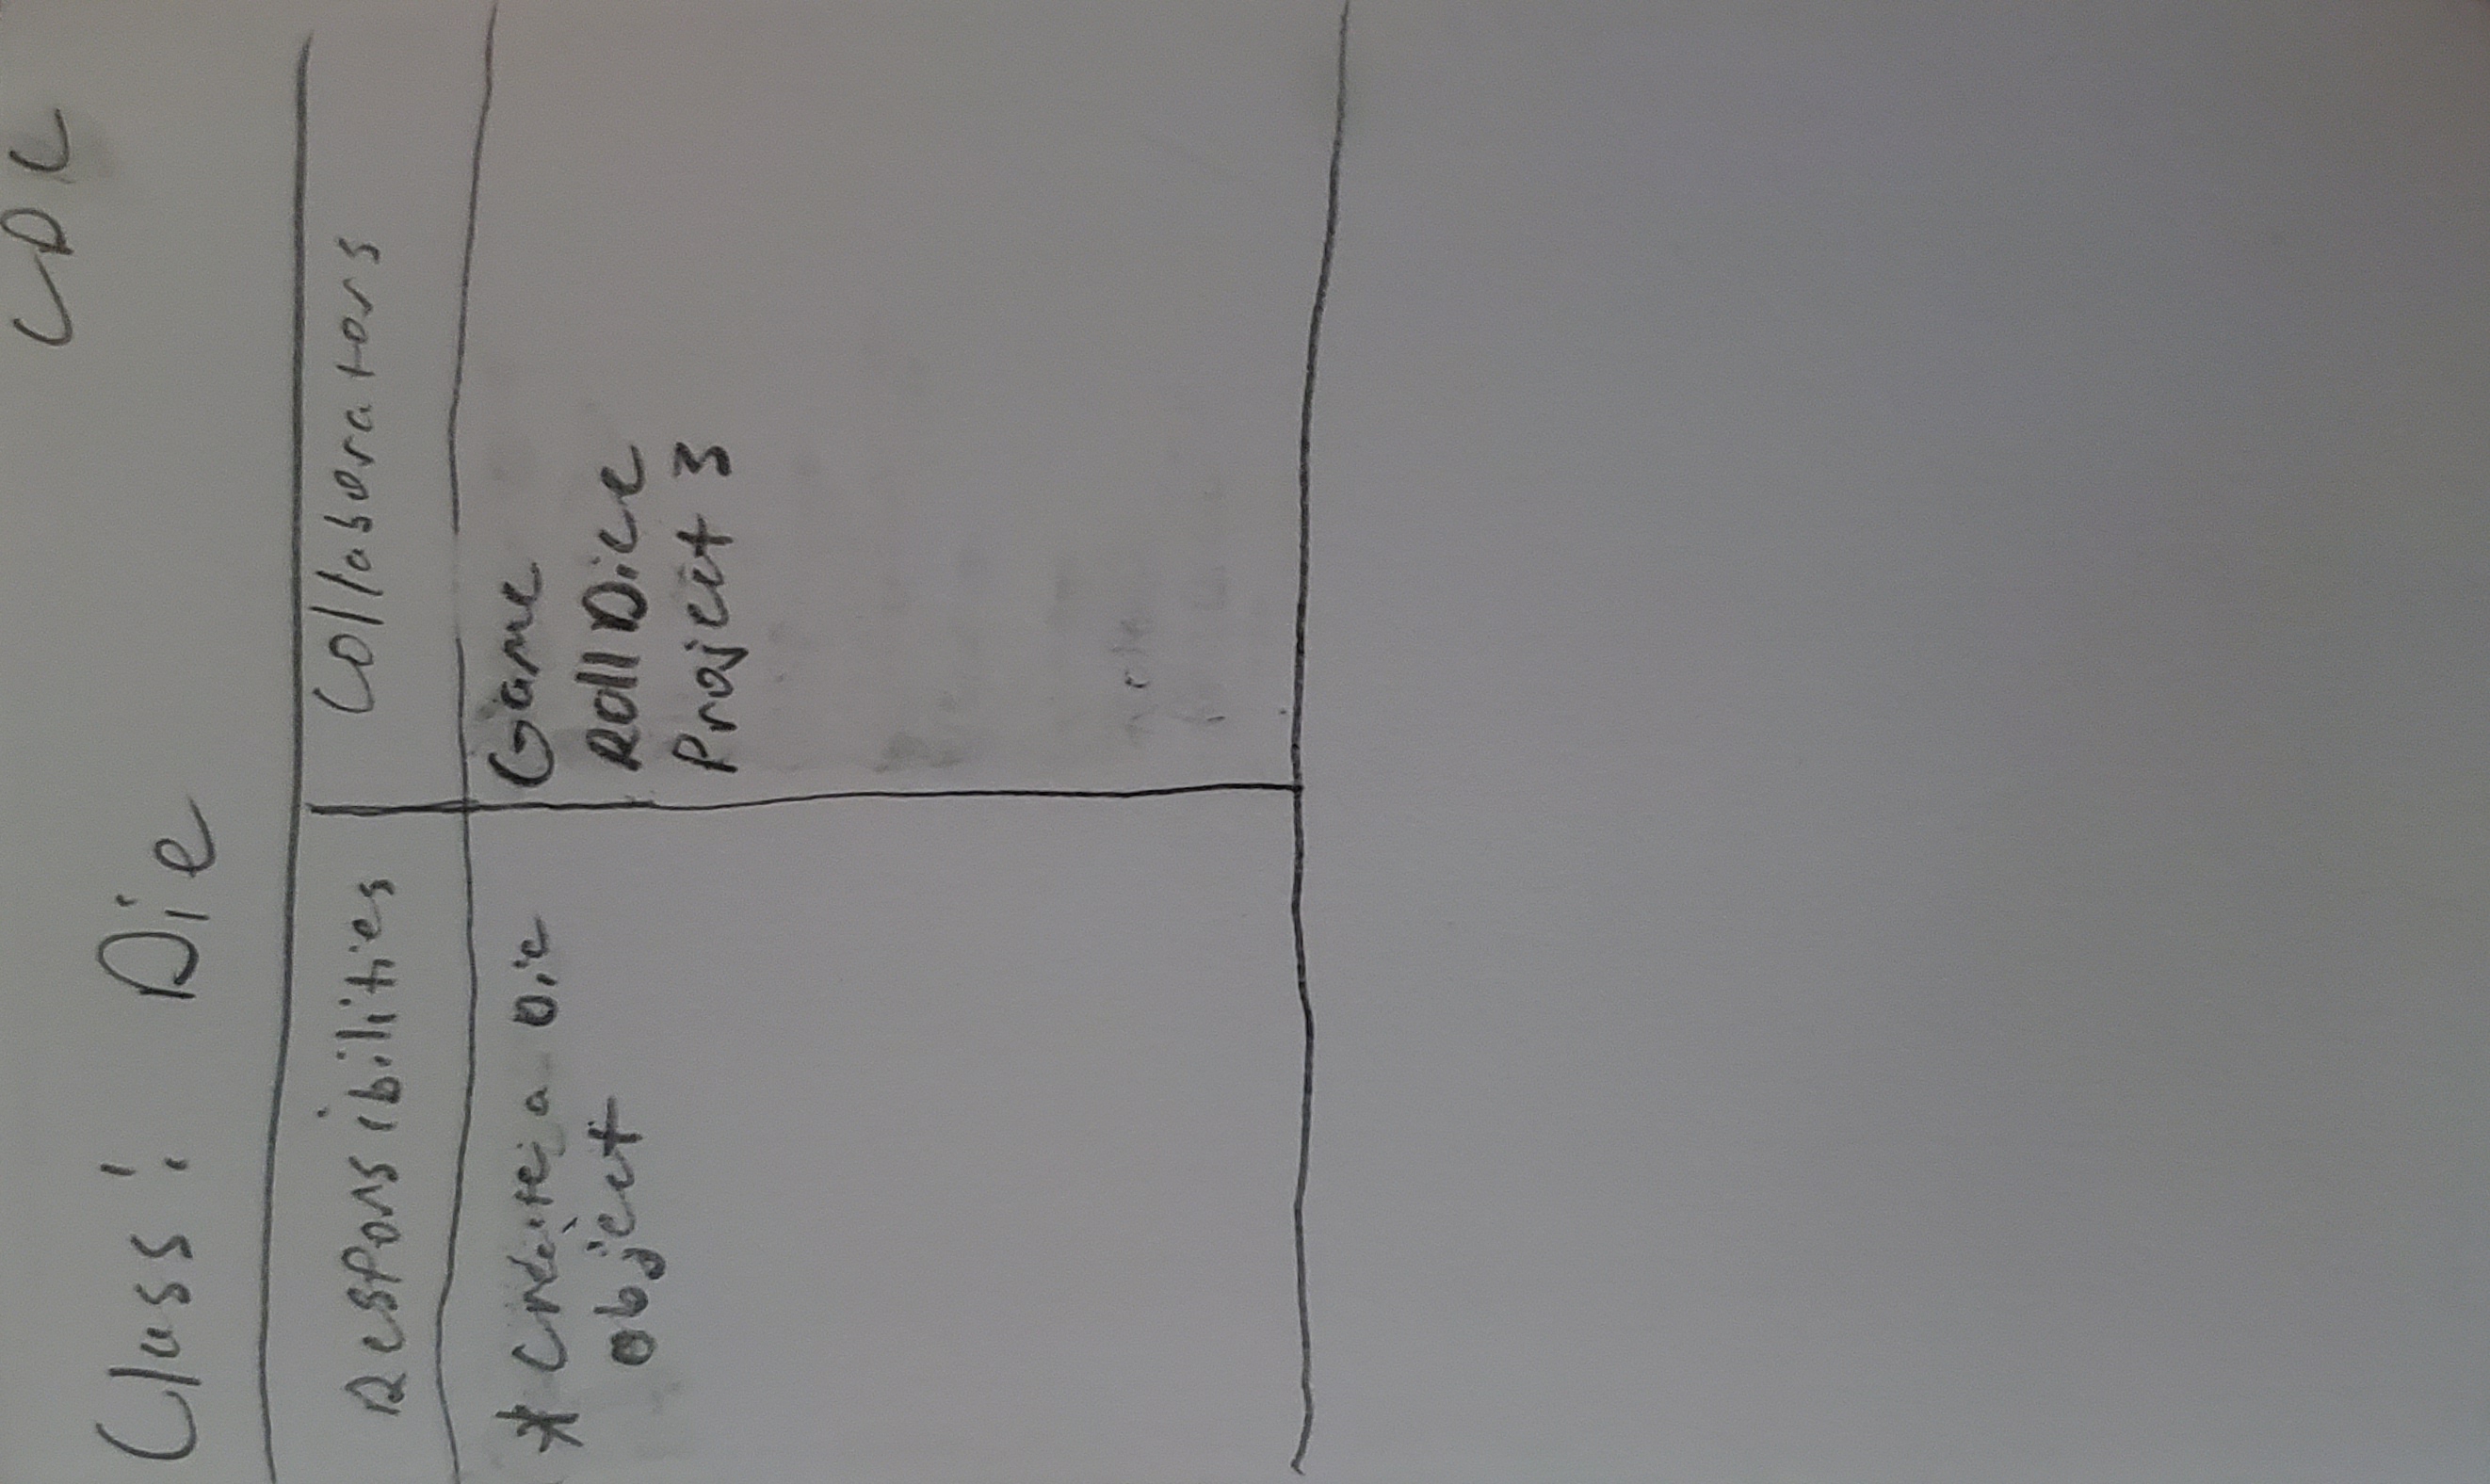 CDC
Class: Die
Responsibilities
Collaborators
* Create a Die
object
Game
Roll Dice
Project 3